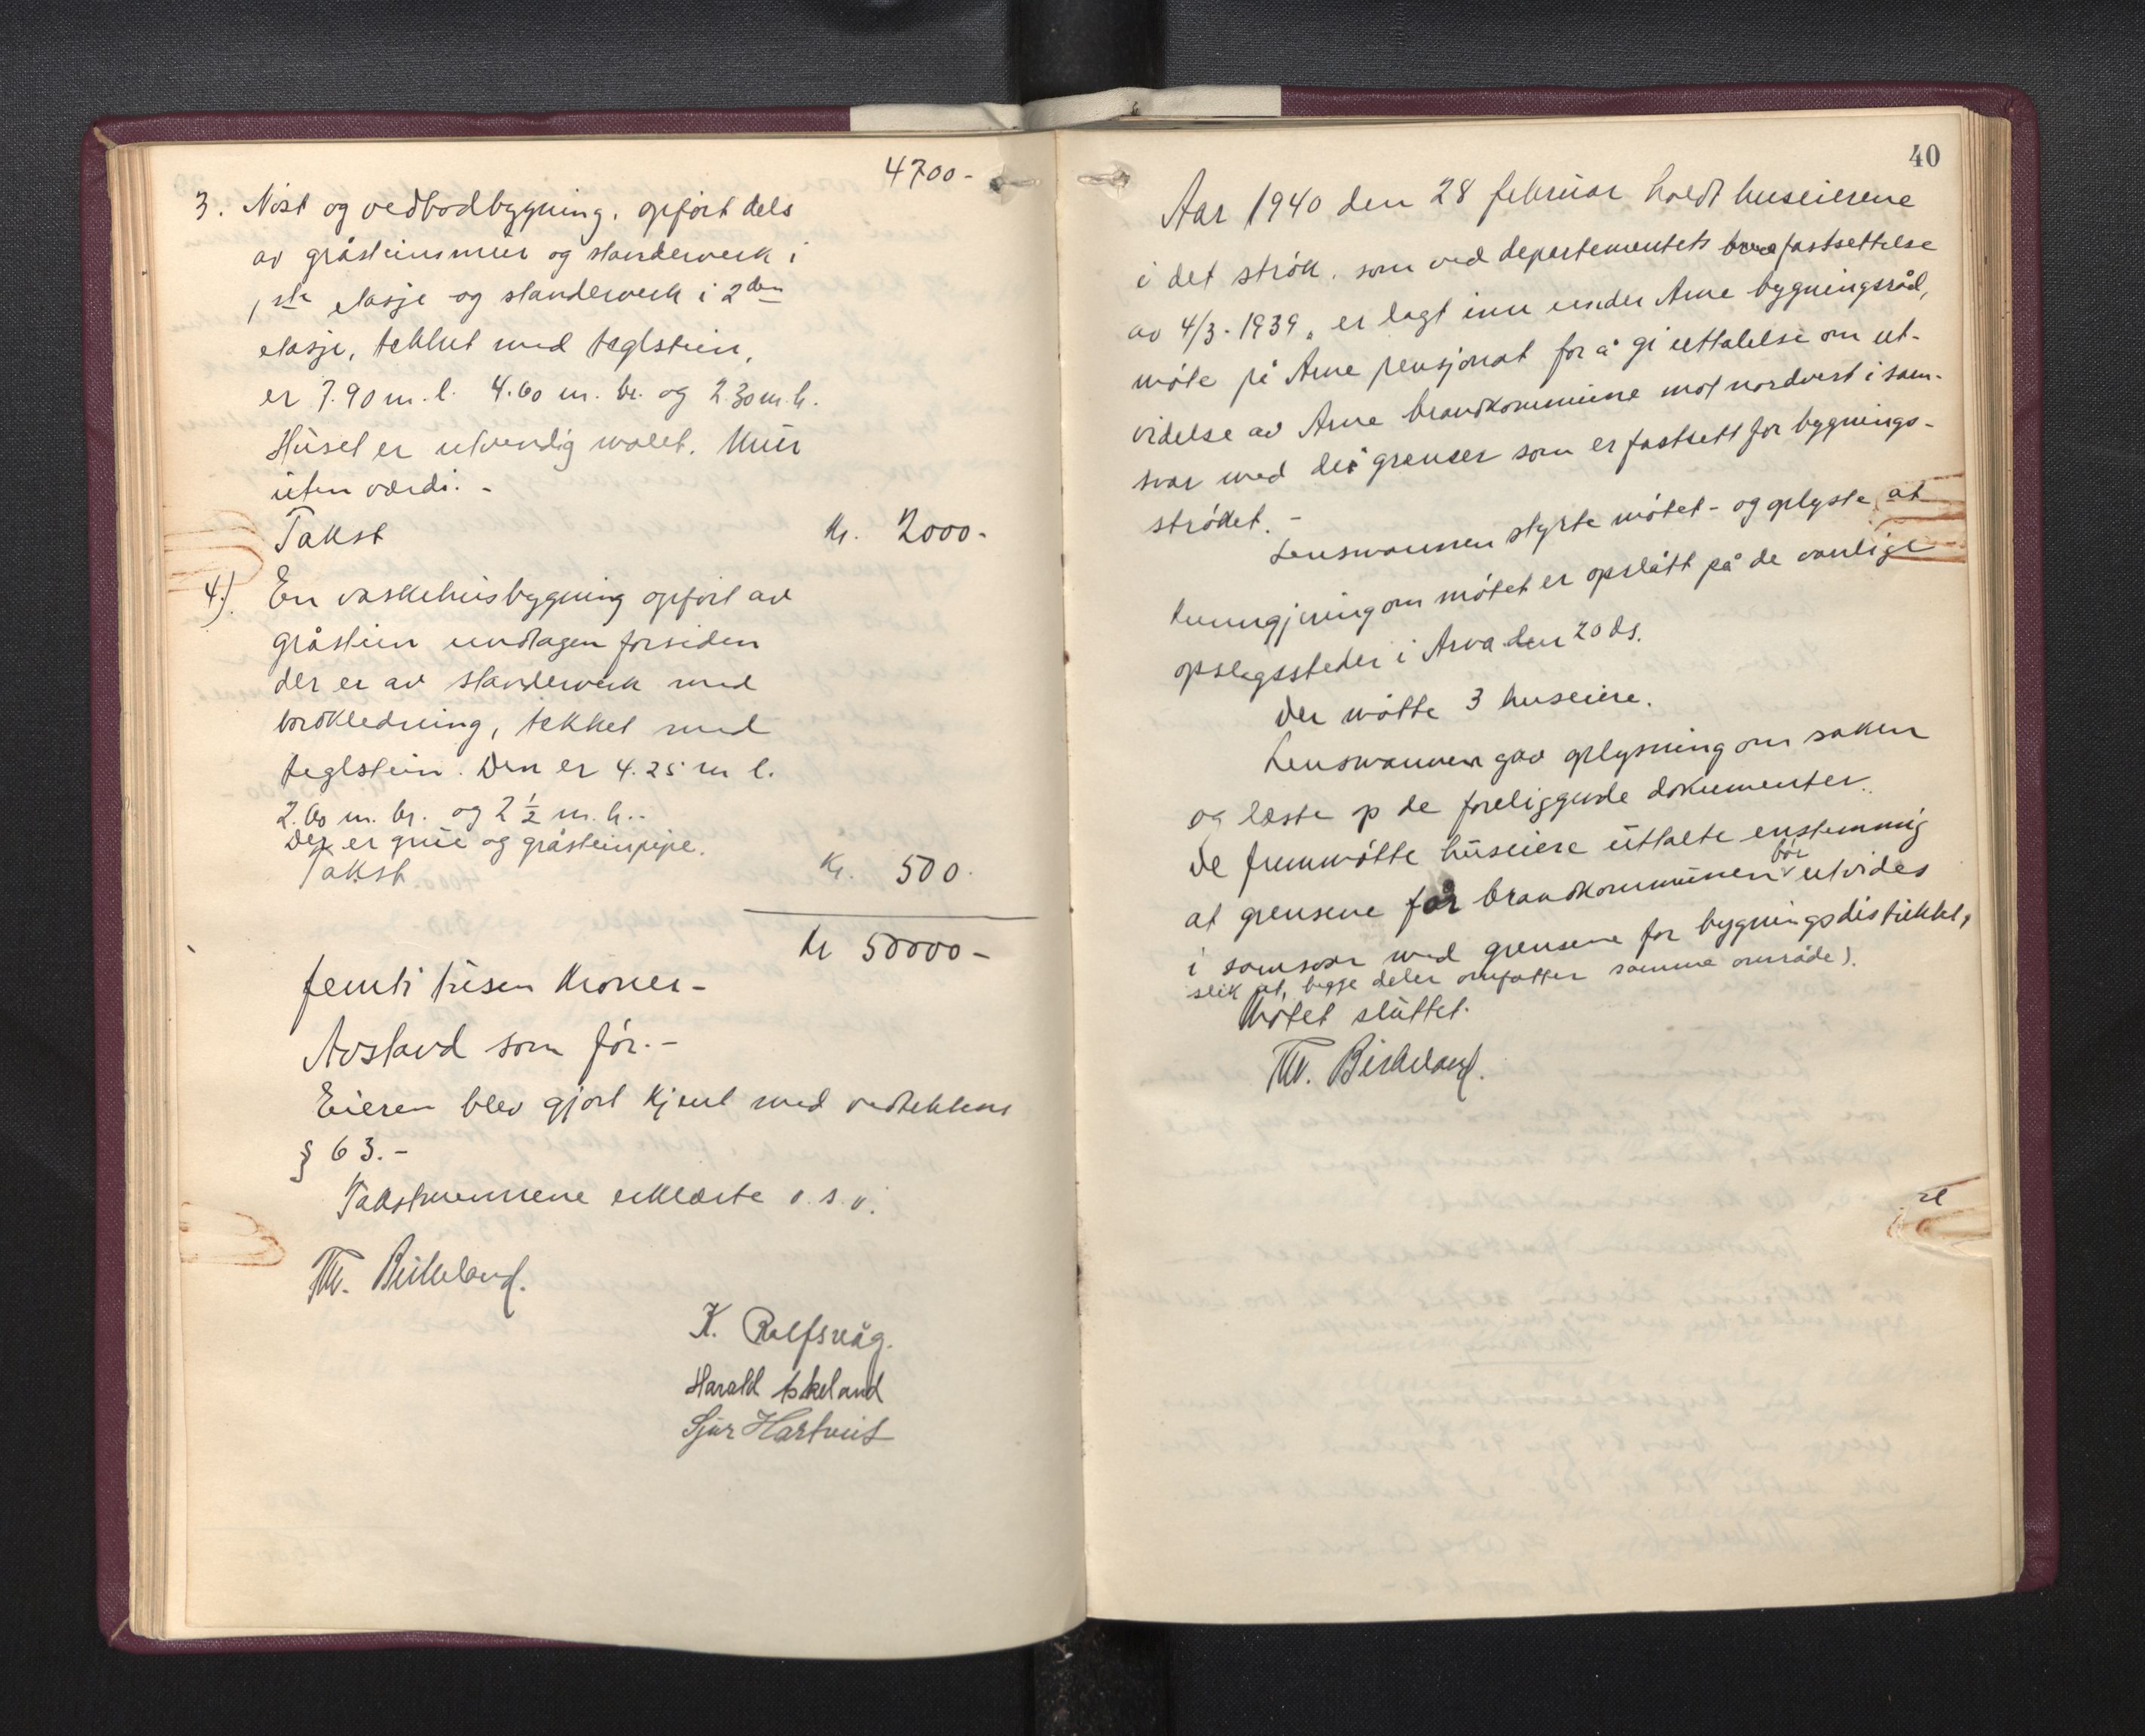 4700-
3. Nøst og vedbodbygning, opført dels
av gråsteinsmur og standerverk i
1ste etasje og standerverk i 2den
etasje, tekket med teglstein,
er 7.90 m. l. 4.60 m. br. og 2.30 m. h.
Huset er utvendig malet. Mur
uten værdi. -
Takst kr. 2000-
4.) En vaskehusbygning opført av
gråstein undtagen forsiden
der er av standerverk med
bordkledning, tekket med
teglstein. Den er 4.25 m l.
2.60 m. br. og 2 1/2 m. h..
Der er grue og gråsteinpipe.
Takst kr. 500.
kr 50000-
femti tusen kroner-
Avstand som før.-
Eieren blev gjort kjent med vedtektens
§ 63.-
Takstmennene erklærte o. s. v.
Th. Birkeland.
K. Rolfsvåg.
Harald Askeland
Sjur Hartveit
40
Aar 1940 den 28 februar holdt huseierene
i det strøk, som ved departementets fastsettelse
av 4/3-1939, er lagt inn under Arne bygningsråd,
møte på Arne pensjonat for å gi uttalelse om ut-
videlse av Arne brandkommune mot nordvest i sam-
svar med de grenser som er fastsett for bygnings-
strøket. -
Lensmannen styrte møtet - og oplyste at
kunngjøring om møtet er opslått på de vanlige
opslagssteder i Arna den 20 ds.
Der møtte 3 huseiere.
Lensmannen gav oplysning om saken
og læste op de foreliggende dokumenter.
De fremmøtte huseiere uttalte enstemmig
bør
at grensene for brandkommunen utvides
i samsvar med grensene for bygningsdistriktet,
slik at, begge deler omfatter samme område).
Møtet sluttet.
Th. Birkeland.